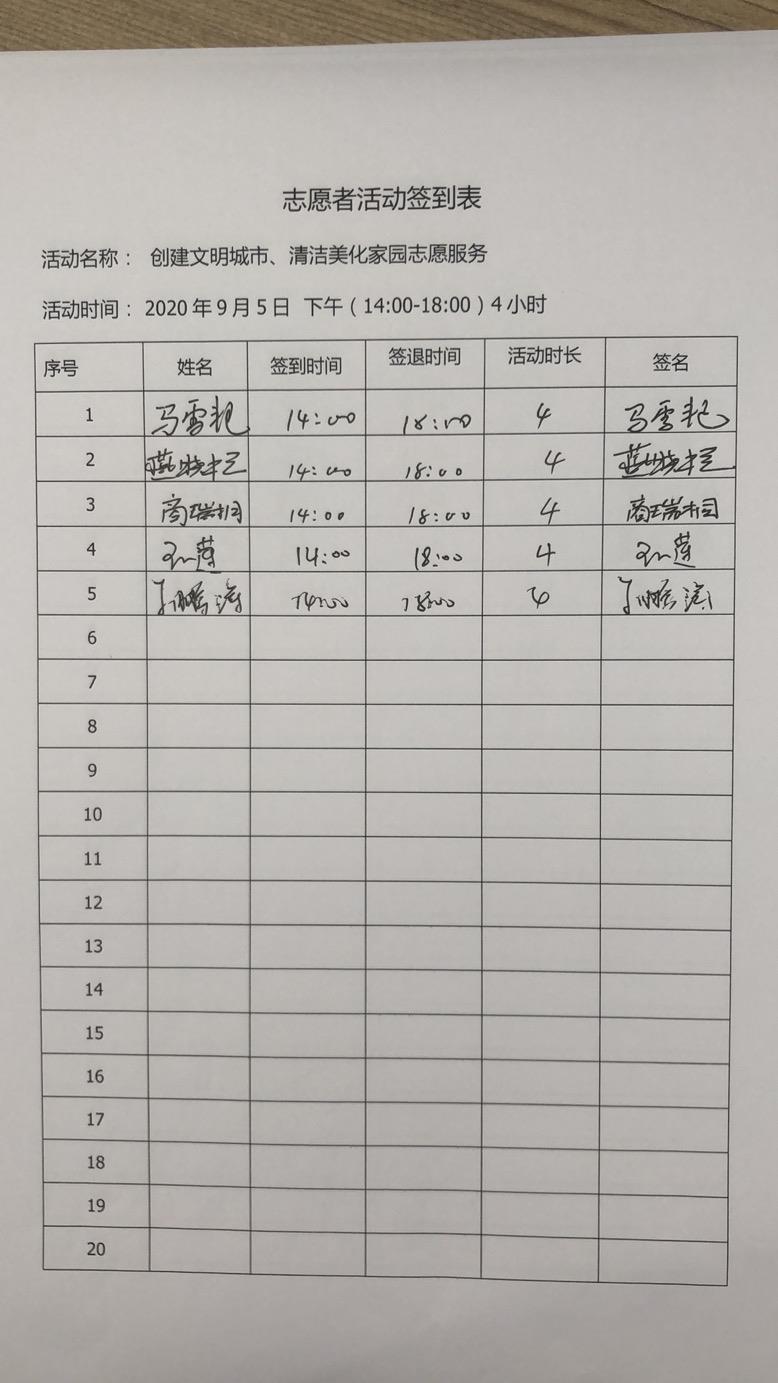 志愿者活动签到表
活动名称： 创建文明城市、清洁美化家园志愿服务
活动时间：2020年9月5日 下午（14:00-18:00）4小时
序号 姓名 签到时间 签退时间 活动时长 签名
1 马雪艳 14:00 18:00 4 马雪艳
2 14:00 18:00 4
3 商瑞相 14:00 18:00 4 商瑞相
4 孙莲 14:00 18:00 4 孙莲
5 14:00 18:00 4
6
7
8
9
10
11
12
13
14
15
16
17
18
19
20